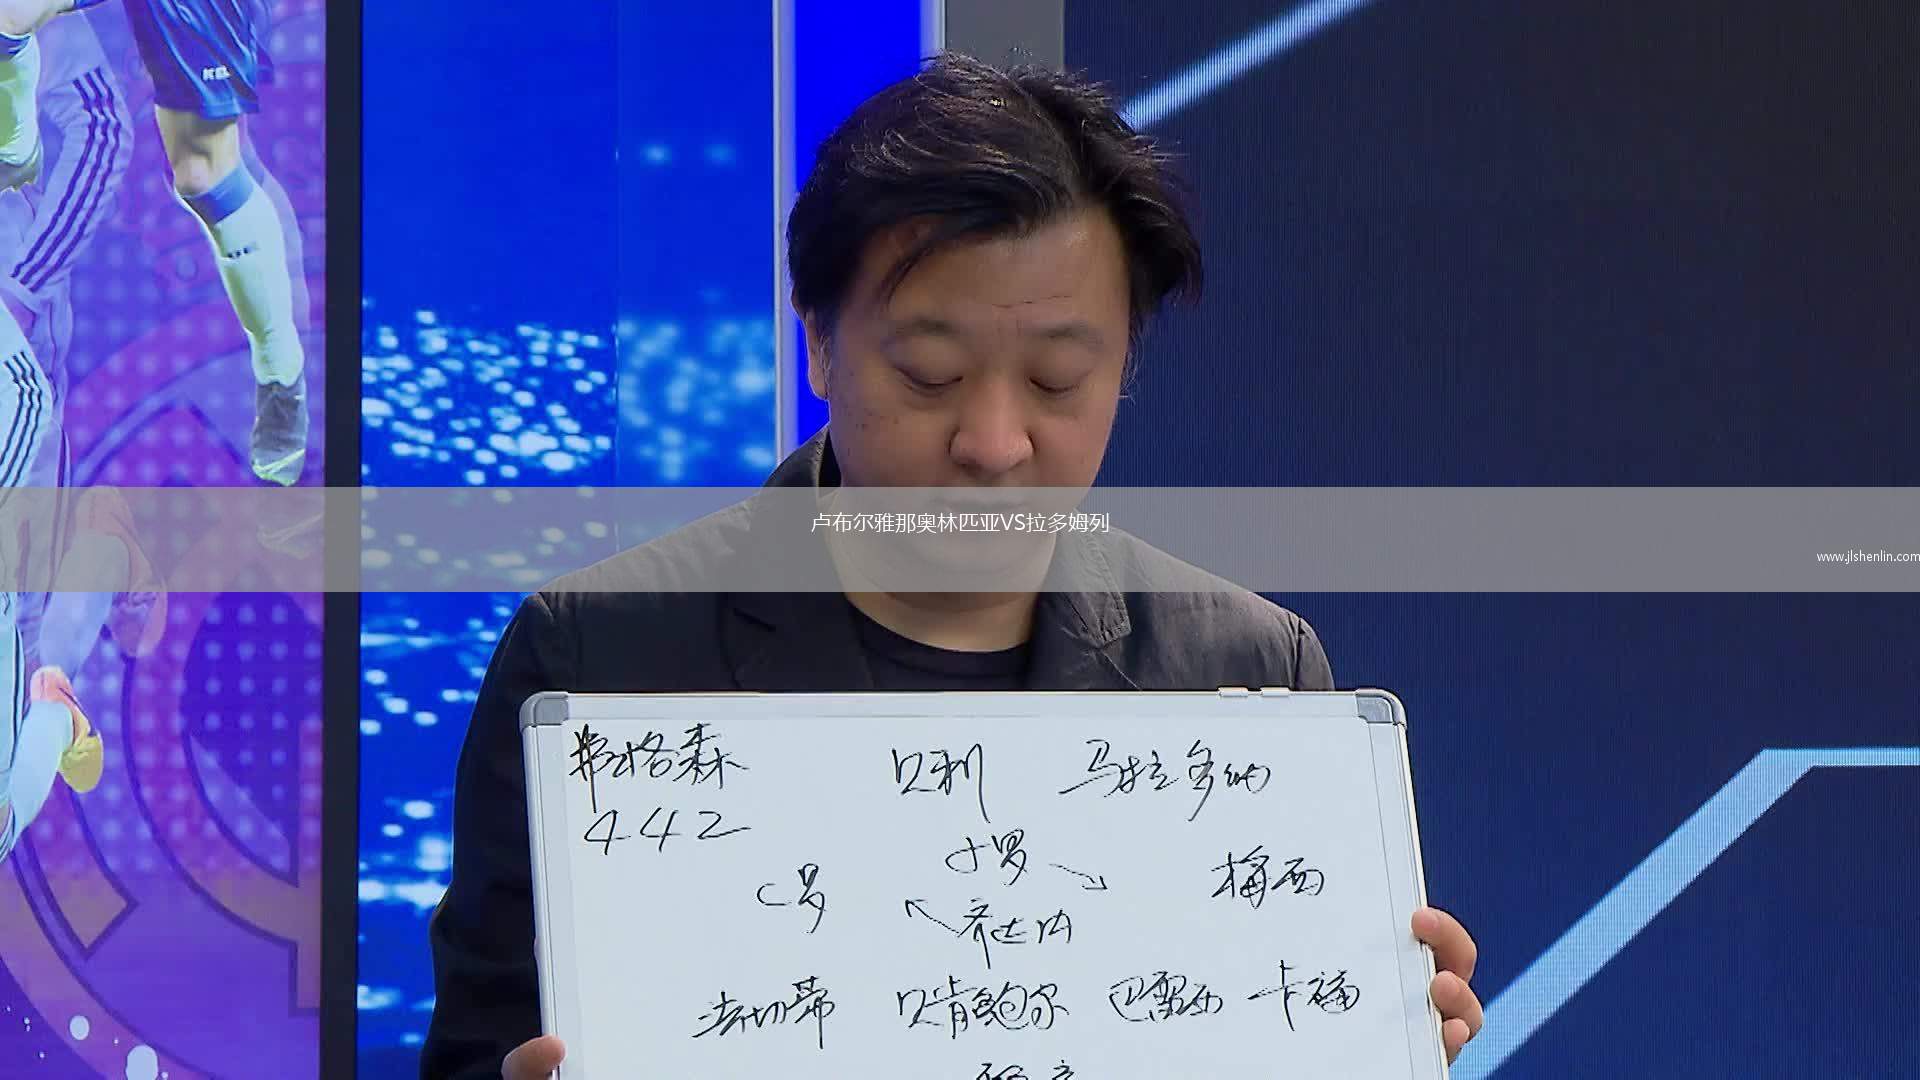 卢布尔雅那奥林匹亚VS拉多姆列
www.jlshenlin.com
弗格森 贝利 马拉多纳
442
小罗
C罗 梅西
齐达内
法切蒂 贝肯鲍尔 巴雷西 卡福